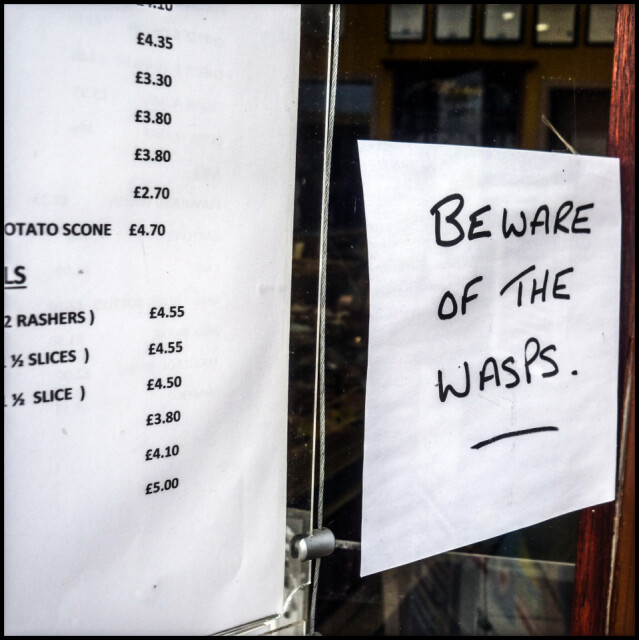 £4.10
£4.35
£3.30
£3.80
£3.80
£2.70
OTATO SCONE £4.70
LS
2 RASHERS ) £4.55
1 ½ SLICES ) £4.55
1 ½ SLICE ) £4.50
£3.80
£4.10
£5.00
BEWARE
OF THE
WASPS.